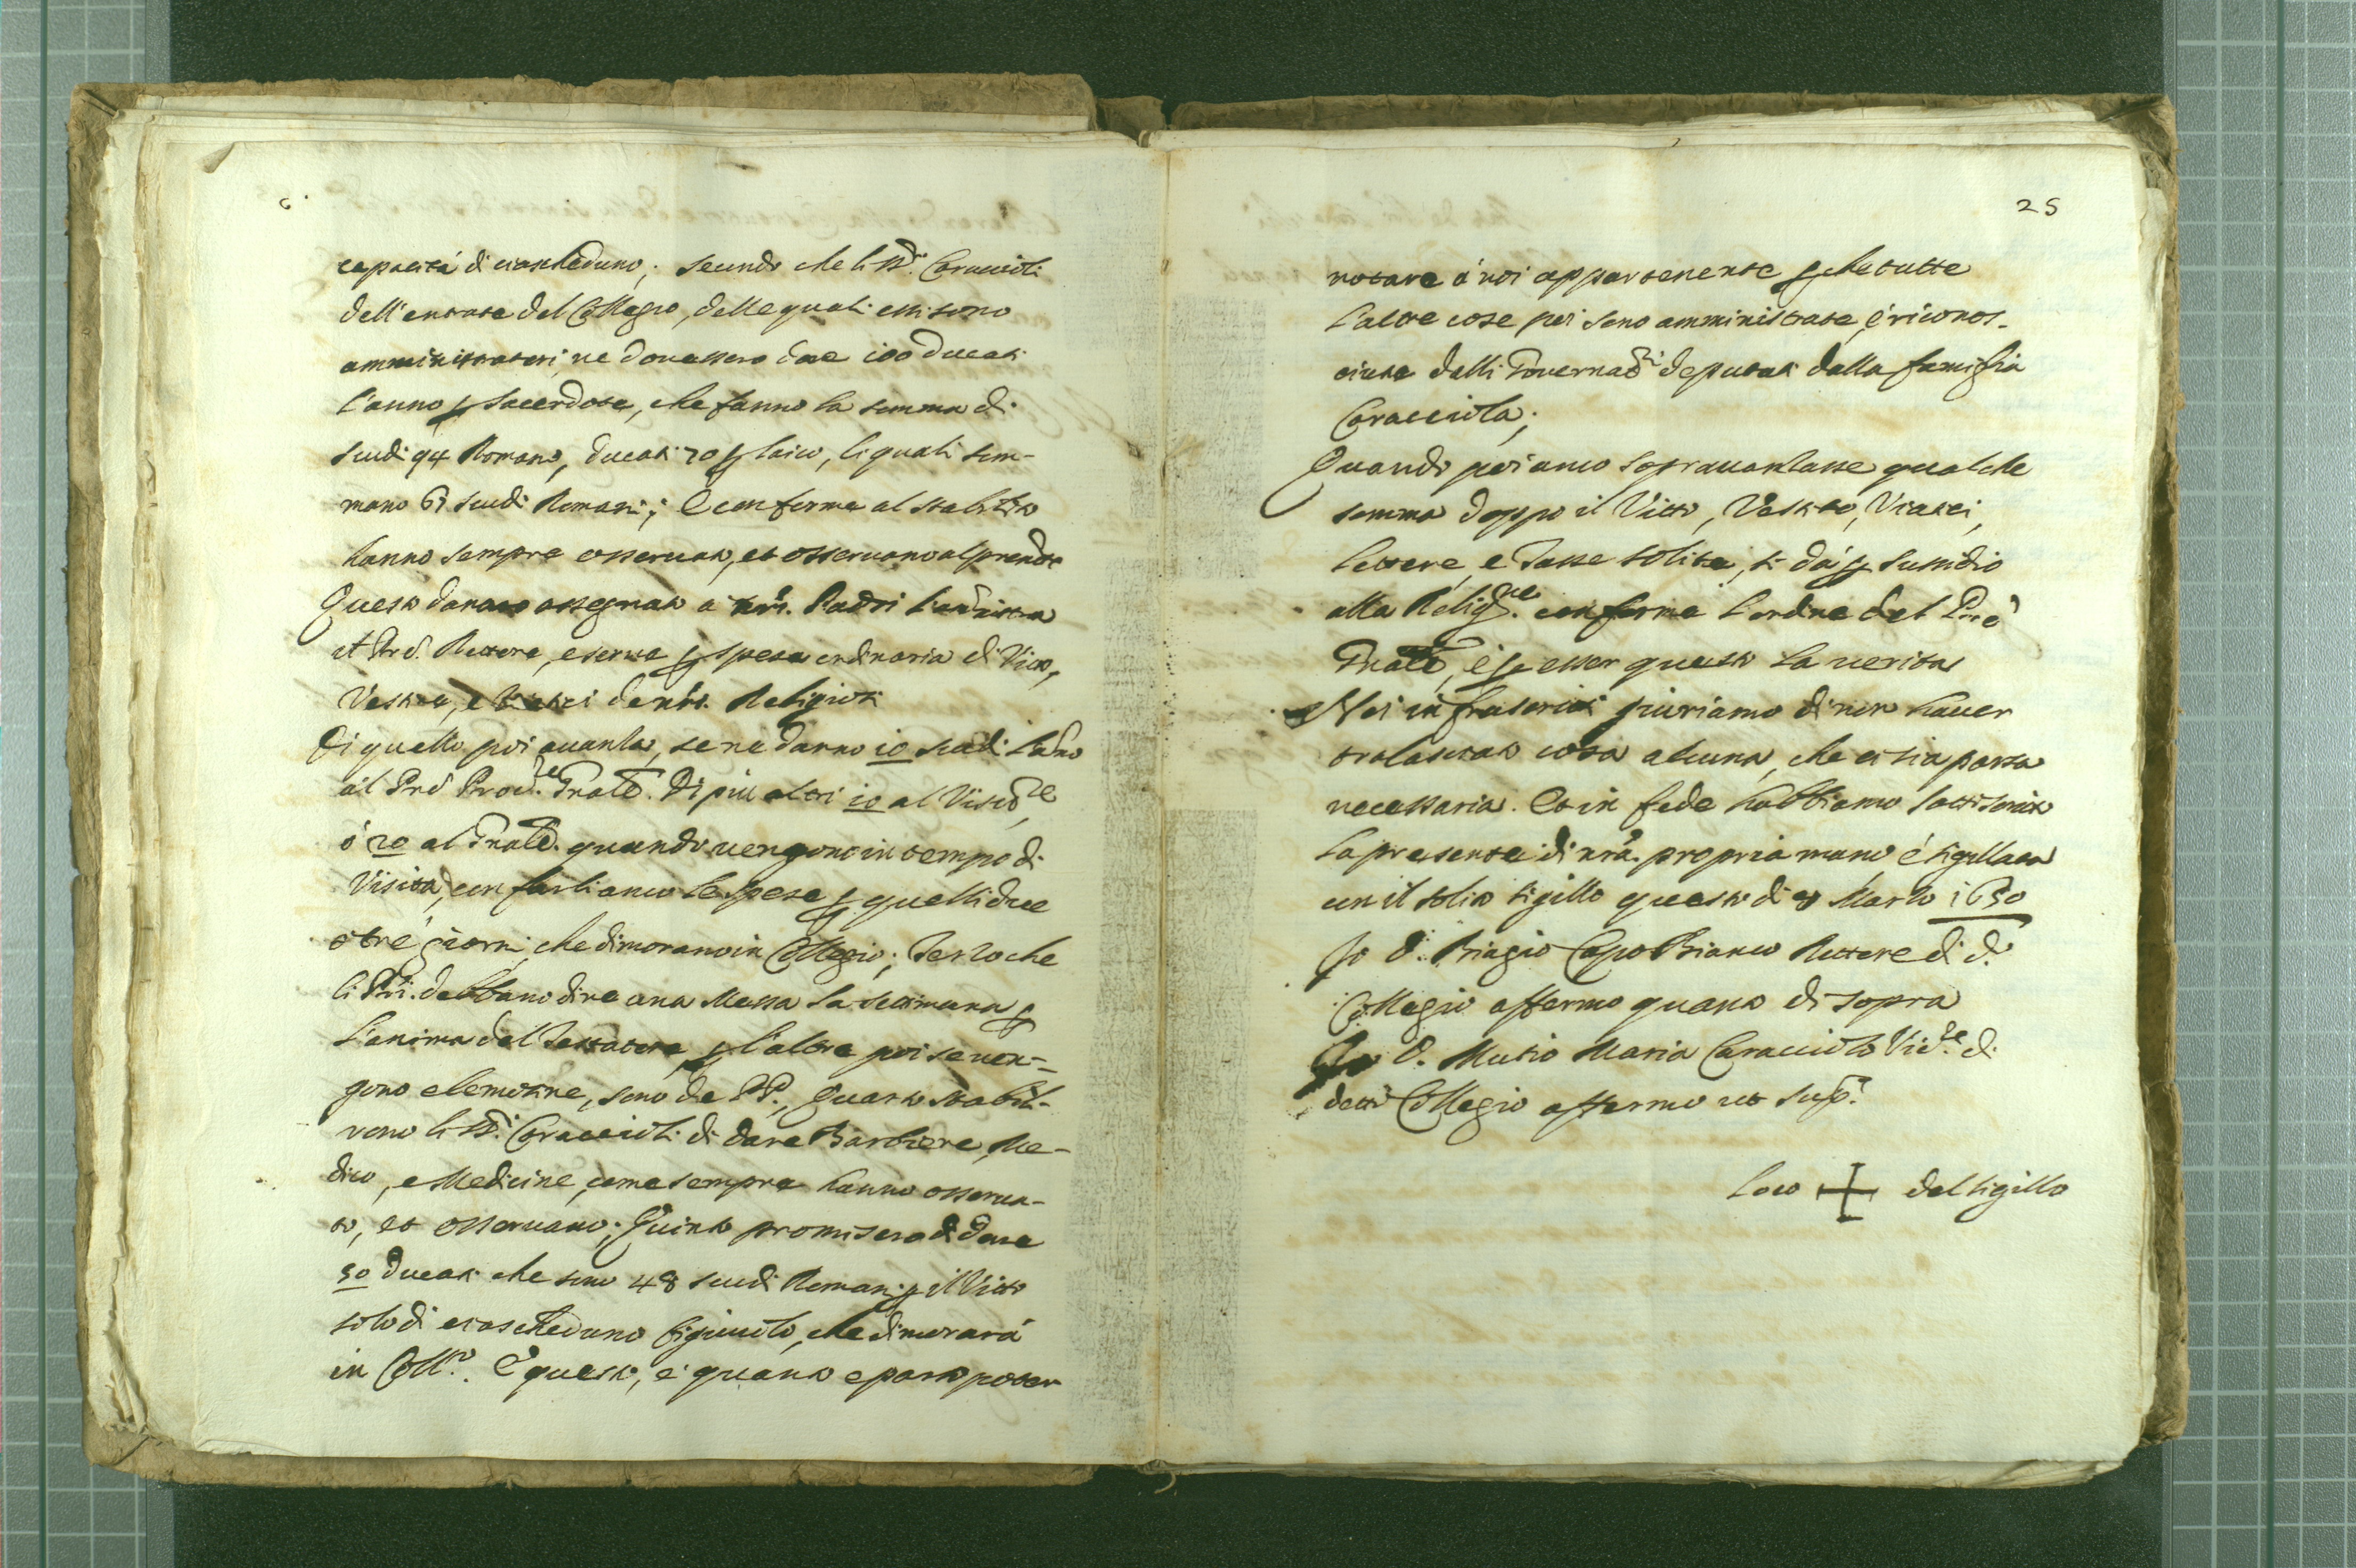 capacità di ciascheduno; secundo che li SSri. Caraccioli
dell'entrate del Collegio, delle quali essi sono
amministratori, ne dovessero dare 100 ducati
l'anno p sacerdote, che fanno la somma di
scudi 94 Romani, ducati 70 p laico, li quali som-
mano 61 scudi Romani; e conforme al stabilito
hanno sempre osservato, et osservano al prendte
Questo danaro assegnato a nri. Padri l'amministra
il Prē. Rettore, e serve p spesa ordinaria di Vitto,
Vestito, e Viatici de nri. Religiosi
Di quello poi avanza, se ne danno 10 scudi l'anno
al Prē Procre. Gnale. Di più altri 10 al Visitre,
ò 20 al Gnale. quando vengono in tempo di
Visita, con farli anco le spese p quelli due
ò tre giorni, che dimorano in Collegio; Terzo che
li Pri. debbano dire una Messa la settimana p
l'anima del Testatore, p l'altre poi se ven-
gono elemosine, sono de PP., Quarto stabili-
rono li SSri. Caraccioli di dare Barbiere, Me-
dico, e Medicine, come sempre hanno osserva-
to, et osservano; Quinto promisero di dare
50 ducati che sono 48 scudi Romani p il Vitto
solo di ciascheduno figiuolo, che dimorarà
in Collo. E questo, è quanto è parso poter
25
notare à noi appartenente p che tutte
l'altre cose poi sono amministrate, e riconos-
ciute dalli Governari deputati dalla famiglia
Caracciola;
Quando poi anco sopravanzasse qualche
somma doppo il Vitto, Vestito, Viatici,
lettere, e Tasse solite, si dà p sussidio
alla Religne. conforme l'ordine del Prē
Gnale, e p esser questo la verità
Noi infrascritti giuriamo di non haver
tralasciato cosa alcuna, che ci sia parsa
necessaria. Et in fede habbiamo sottoscritto
la presente di nrā. propria mano, e sigillata
con il solito sigillo questo di 8 Marzo 1650
Io D. Biagio Capo Bianco Rettore di d.
Collegio affermo quanto di sopra
Io D. Mutio Maria Caracciolo Vicre. di
detto Collegio affermo ut supa.
Loco + del sigillo